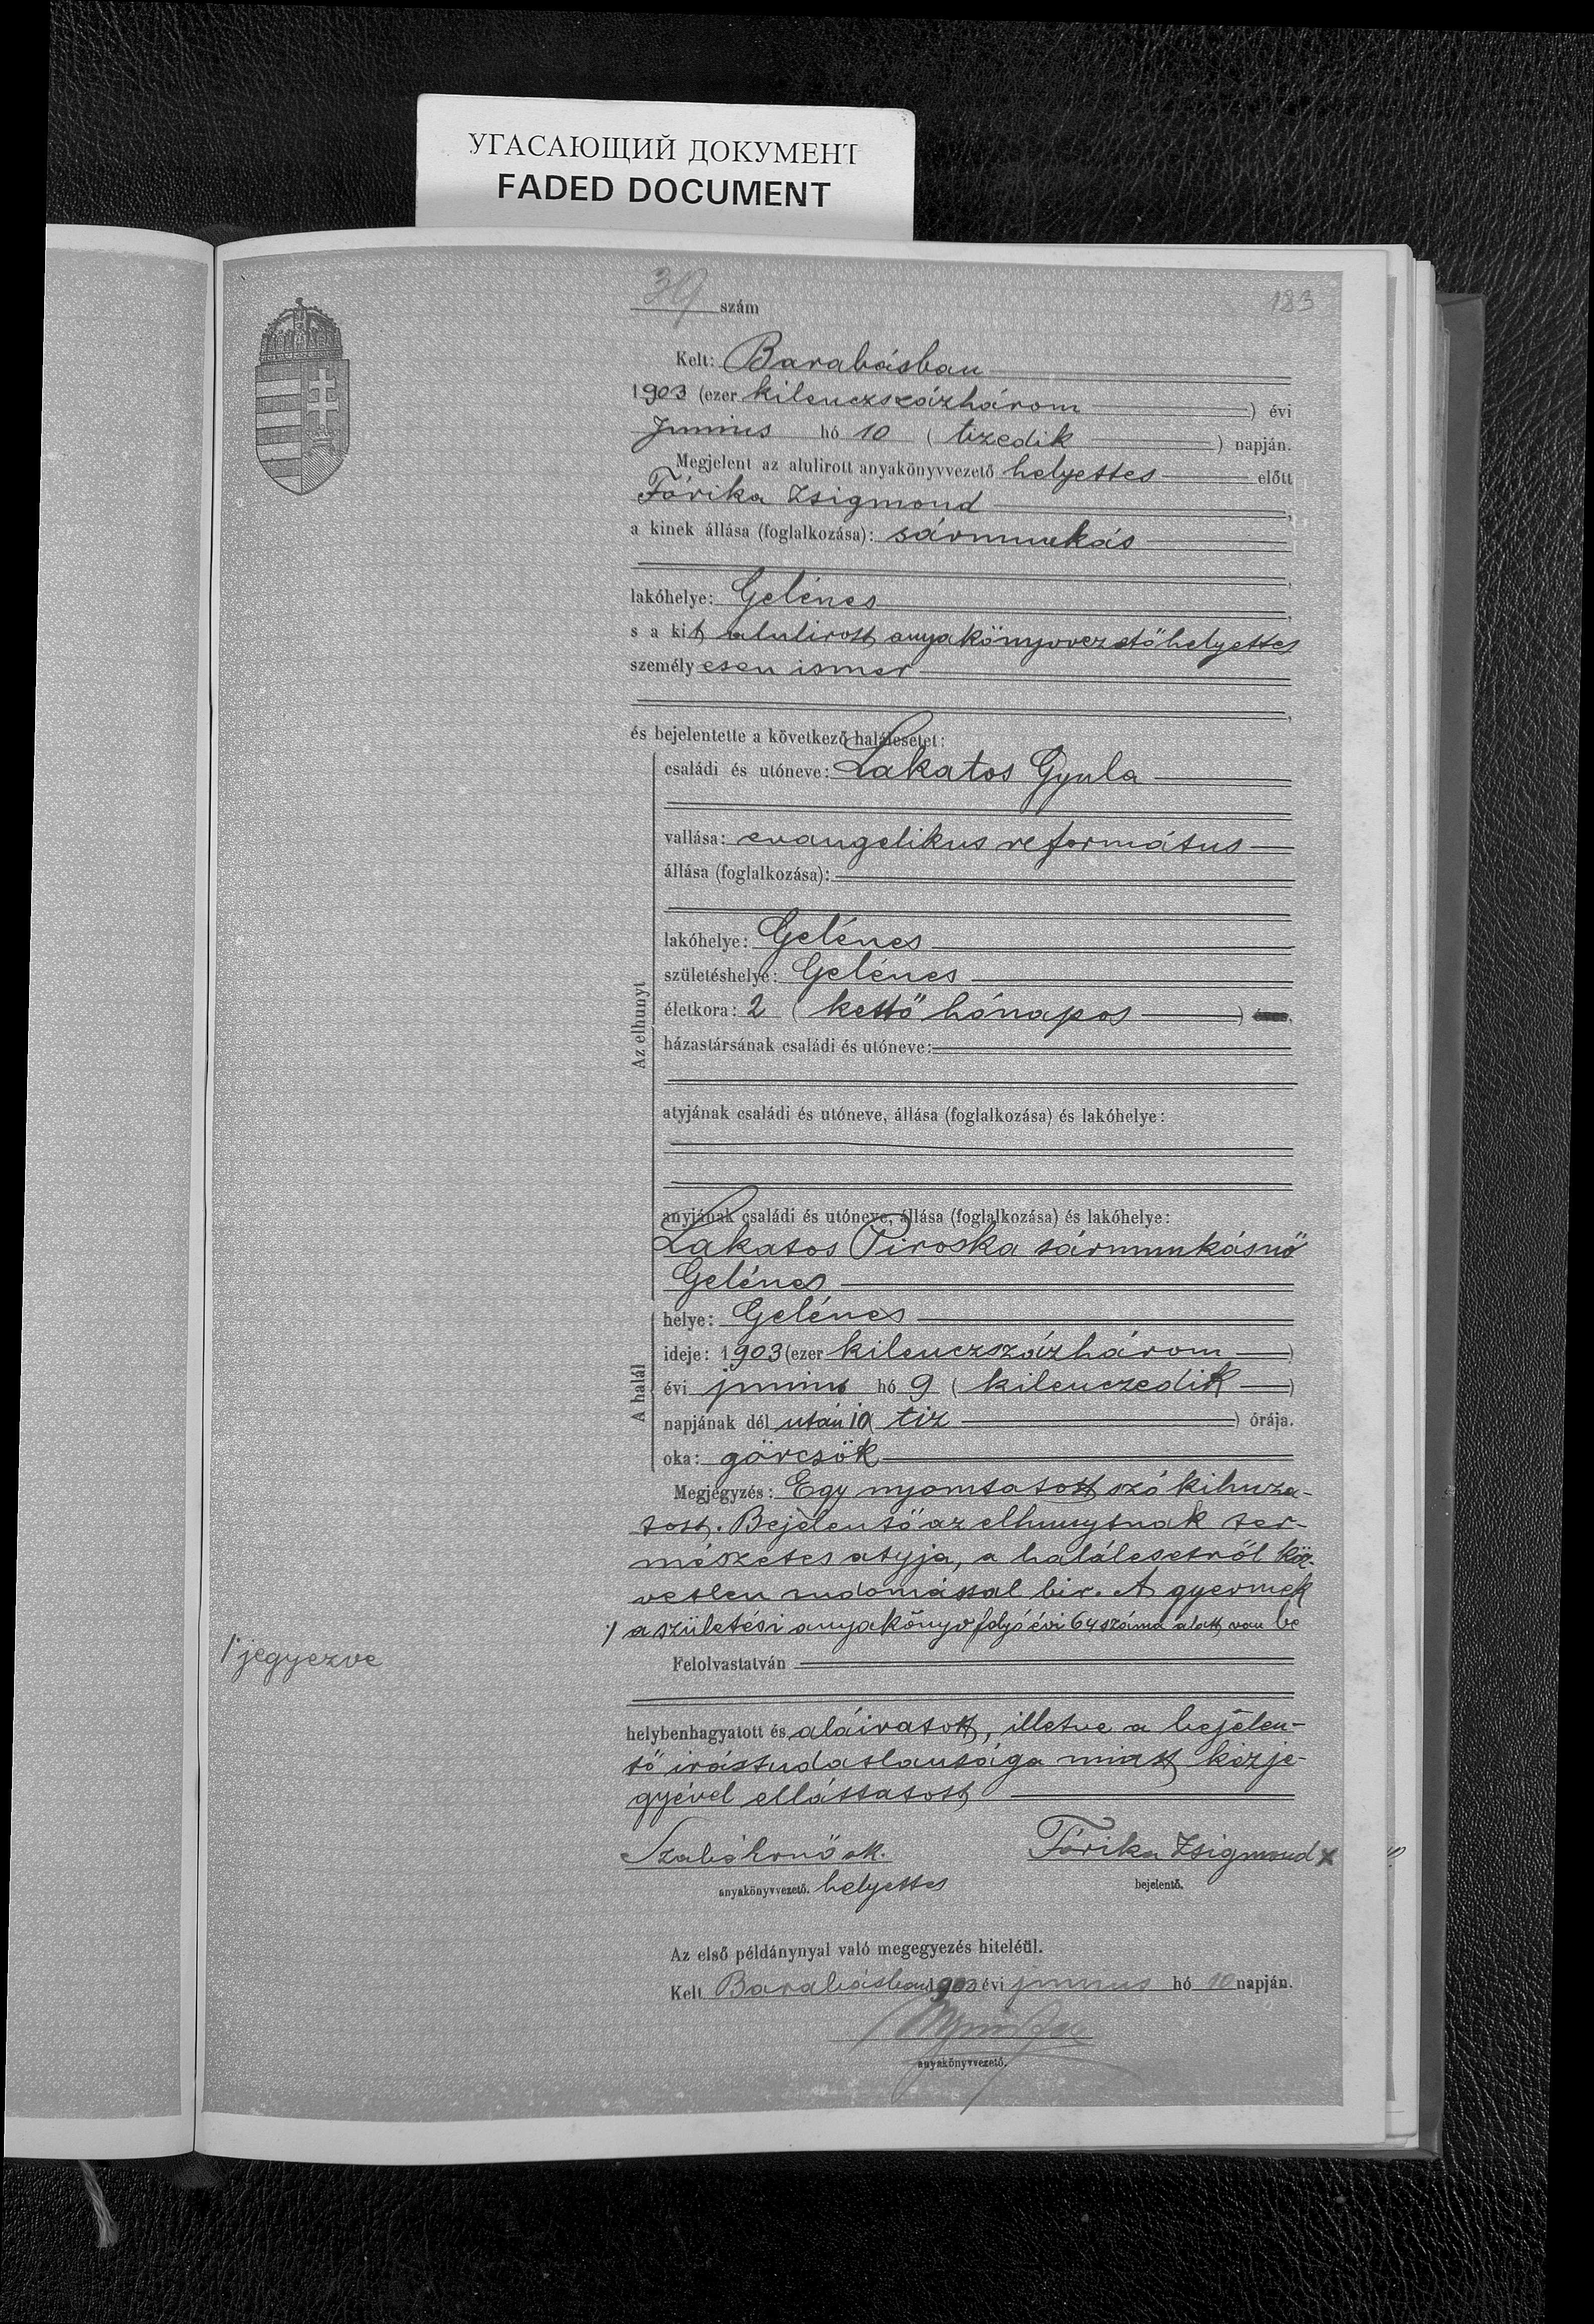 УГАСАЮЩИЙ ДОКУМЕНТ
FADED DOCUMENT
39 szám
183
Kelt: Barabásban
1903 (ezer kilenczszázhárom) évi
Junius hó 10 (tizedik) napján.
Megjelent az alulirott anyakönyvvezető helyettes előtt
Fórika Zsigmond,
a kinek állása (foglalkozása): sármunkás
lakóhelye: Gelénes,
s a kit alulirott anyakönyvvezetőhelyettes
személyesen ismer
és bejelentette a következő halálesetet:
Az elhunyt
családi és utóneve: Lakatos Gyula
vallása: evangelikus református
állása (foglalkozása):
lakóhelye: Gelénes
születéshelye: Gelénes
életkora: 2 (kettő hónapos) éves.
házastársának családi és utóneve:
atyjának családi és utóneve, állása (foglalkozása) és lakóhelye:
anyjának családi és utóneve, állása (foglalkozása) és lakóhelye:
Lakatos Piroska sármunkásnő
Gelénes
A halál
helye: Gelénes
ideje: 1903 (ezer kilenczszázhárom)
évi junius hó 9 (kilenczedik)
napjának dél után 10 (tiz) órája.
oka: görcsök
Megjegyzés: Egy nyomtatott szó kihuza-
tott. Bejelentő az elhunytnak ter-
mészetes atyja, a halálesetről köz-
vetlen tudomással bir. A gyermek
./ a születési anyakönyv folyó évi 64 száma alatt van be
./ jegyezve
Felolvastatván
helybenhagyatott és aláiratott, illetve a bejelen-
tő irástudatlansága miatt kézje-
gyével elláttatott
Szabó Ernő sk. Fórika Zsigmond x
anyakönyvvezető. helyettes bejelentő.
Az első példánynyal való megegyezés hiteléül.
Kelt Barabásban 1903 évi junius hó 10 napján.
anyakönyvvezető.